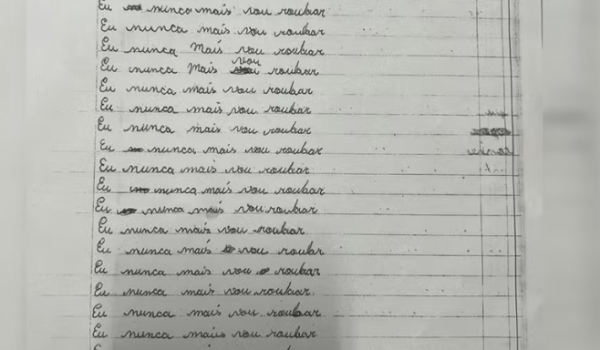 Eu nunca mais vou roubar
Eu nunca mais vou roubar
Eu nunca Mais vou roubar
Eu nunca Mais vou roubar
Eu nunca mais vou roubar
Eu nunca mais vou roubar
Eu nunca mais vou roubar
Eu nunca mais vou roubar
Eu nunca mais vou roubar
Eu nunca mais vou roubar
Eu nunca mais vou roubar
Eu nunca mais vou roubar
Eu nunca mais vou roubar
Eu nunca mais vou roubar
Eu nunca mais vou roubar
Eu nunca mais vou roubar
Eu nunca mais vou roubar